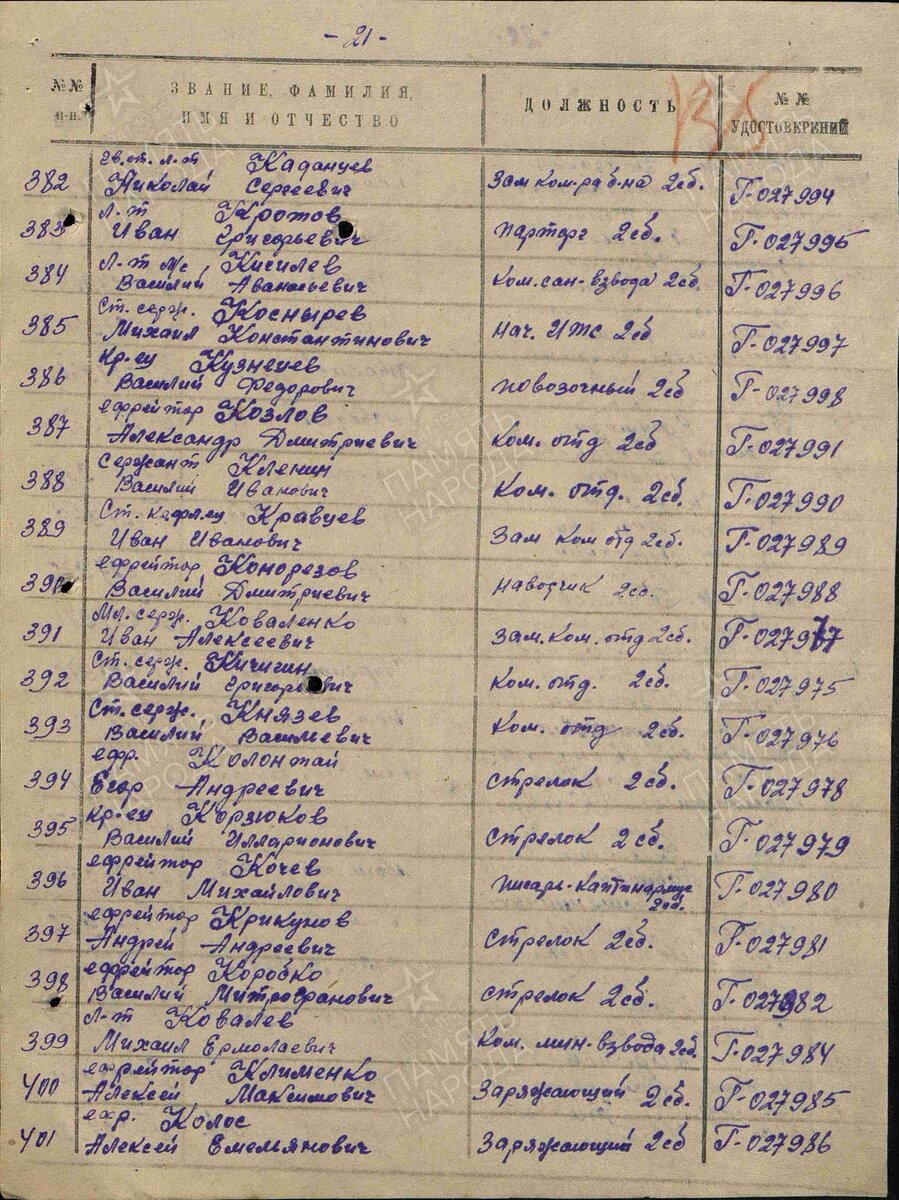 - 21 -
135
№№ п-п. ЗВАНИЕ, ФАМИЛИЯ, ИМЯ И ОТЧЕСТВО ДОЛЖНОСТЬ №№ УДОСТОВЕРЕНИЙ
гв. ст. л-т Каданцев
382 Николай Сергеевич Зам ком. по б-на 2сб. Г-027994
л-т Кротов
383 Иван Григорьевич парторг 2сб. Г-027995
л-т м/с Кисилев
384 Василий Аванасьевич Ком. сан-взвода 2сб. Г-027996
Ст. серж. Коснырев
385 Михаил Константинович нач. 2сб Г-027997
Кр-ец Кузнецев
386 Василий Федорович повозочный 2сб Г-027998
ефрейтор Козлов
387 Александр Дмитриевич Ком. отд 2сб Г-027991
Сержант Кленин
388 Василий Иванович Ком. отд. 2сб. Г-027990
Ст. Кр-ец Кравцев
389 Иван Иванович Зам Ком отд 2сб. Г-027989
ефрейтор Конорезов
390 Василий Дмитриевич наводчик 2сб. Г-027988
Мл. серж. Коваленко
391 Иван Алексеевич Зам. Ком. отд 2сб. Г-027977
Ст. серж. Кичигин
392 Василий Григорьевич Ком. отд. 2сб. Г-027975
Ст. серж. Князев
393 Василий Васильевич Ком. отд 2сб. Г-027976
ефр. Колонтай
394 Егор Андреевич стрелок 2сб. Г-027978
Кр-ец Корзюков
395 Василий Илларионович стрелок 2сб. Г-027979
ефрейтор Кочев
396 Иван Михайлович писарь-каптинариус 2сб. Г-027980
ефрейтор Крикунов
397 Андрей Андреевич стрелок 2сб. Г-027981
ефрейтор Коробко
398 Василий Митрофанович стрелок 2сб. Г-027982
л-т Ковалев
399 Михаил Ермолаевич Ком. мин-взвода 2сб. Г-027984
ефрейтор Клименко
400 Алексей Максимович Заряжающий 2сб. Г-027985
ефр. Колос
401 Алексей Емельянович Заряжающий 2сб Г-027986
ПАМЯТЬ НАРОДА